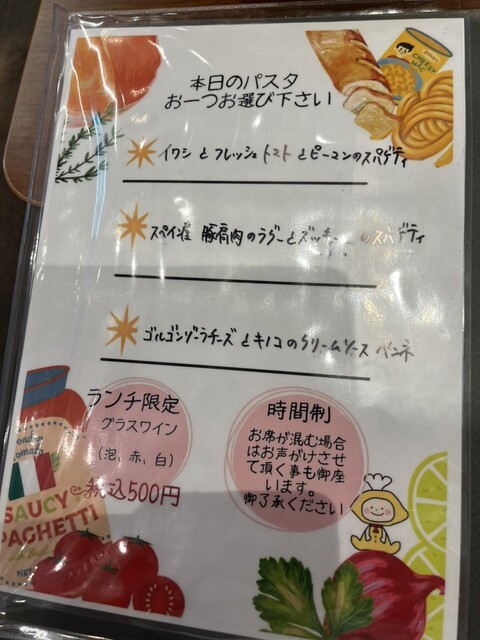 本日のパスタ
お一つお選び下さい
CHEESY
MAC
イワシとフレッシュトマトとピーマンのスパゲティ
スペイン産 豚肩肉のラグーとズッキーニのスパゲティ
ゴルゴンゾーラチーズとキノコのクリームソース ペンネ
ランチ限定
グラスワイン
(泡、赤、白)
税込500円
時間制
お席が混む場合
はお声がけさせ
て頂く事も御座
います。
御了承ください
SAUCY
SPAGHETTI